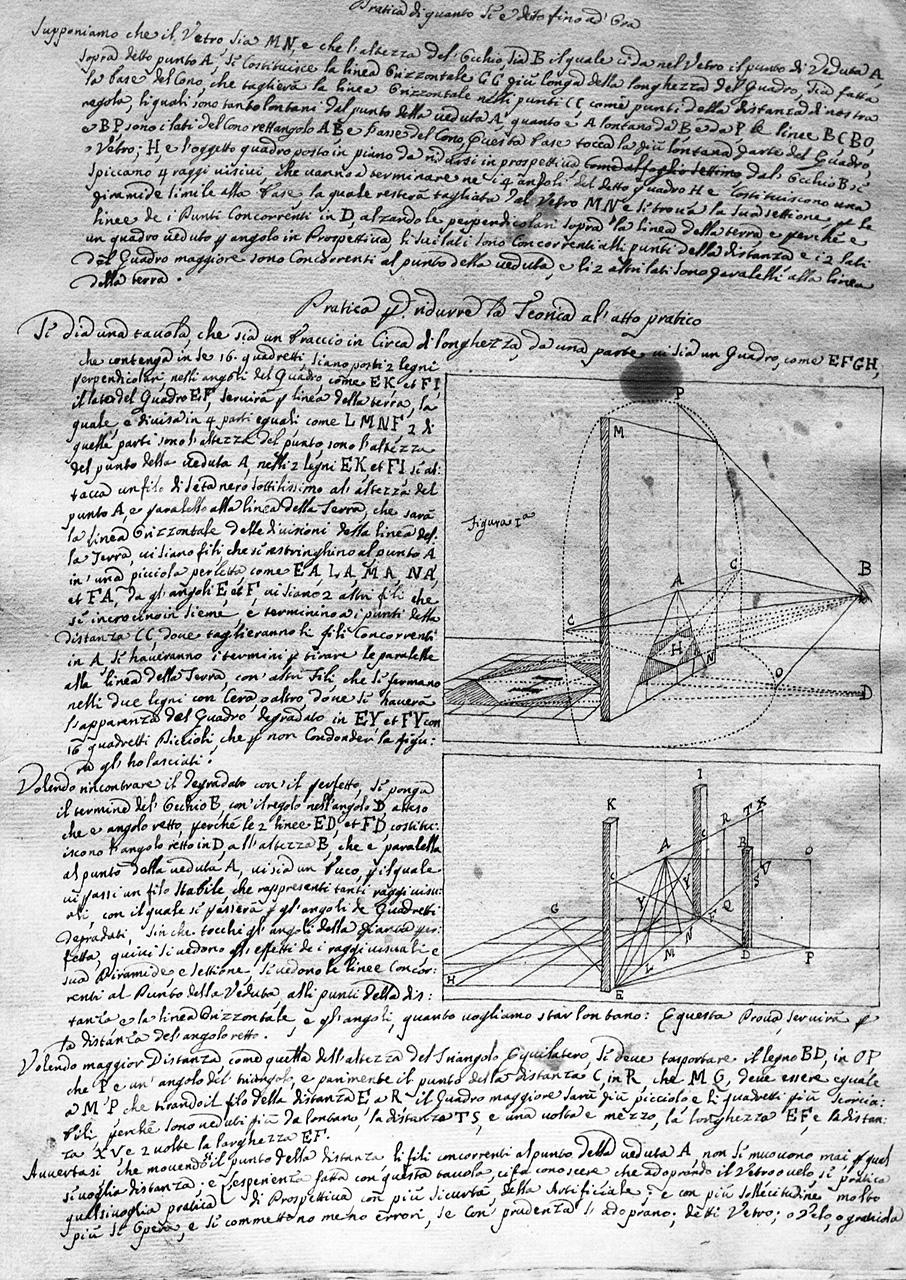 Pratica di quanto si è detto fino ad' Ora
Supponiamo che il Vetro sia MN, e che l'altezza del Occhio sia B il quale cida nel Vetro il punto di Veduta A,
sopra detto punto A, si Costituisce la linea Orizzontale CC più longa della longhezza del Quadro, sia fatta
la base del Cono, che taglierà la linea Orizzontale nelli punti CC come punti della distanza di nostra
regola, li quali sono tanto lontani dal punto della veduta A, quanto è A lontano da B e da P le linee BC BO,
e BP, sono i lati del Cono rettangolo AB, e base del Cono, questa base tocca la più lontana parte del Quadro,
o Vetro; H è l'oggetto quadro posto in piano da ridursi in prospettiva come al foglio settimo dal' Occhio B si
spiccano 4 raggi visivi, che vanno a terminare ne i 4 angoli del detto quadro H e Costituiscono una
piramide simile alla base, la quale resterà tagliata dal Vetro MN e si trova la sua settione, p le
linee de i Punti Concorrenti in D, alzando le perpendicolari sopra la linea della terra e perche è
un quadro veduto p angolo in Prospettiva li sui lati sono Concorrenti alli punti della distanza e i 2 lati
del Quadro maggiore sono Concorrenti al punto della veduta, e li 2 altri lati sono paralelli alla linea
della terra.
Pratica p ridurre la Teorica al' atto pratico
Si dia una tavola, che sia un braccio in Circa di longhezza, da una parte vi sia un Quadro, come EFGH,
che contenga in se 16 quadretti, siano posti 2 legni
perpendicolari, nelli angoli del Quadro come EK et FI,
il lato del Quadro EF, servirà p linea della terra, la
quale è divisa in 4 parti eguali come LMNF 2 di
quelle parti sono l'altezza del punto sono l'altezza
del punto della veduta A, nelli 2 legni EK et FI si at:
tacca un filo di seta nero sottilissimo al' altezza del
punto A e paralello alla linea della Terra, che sarà
la linea Orizzontale delle divisioni della linea del:
la Terra, vi siano fili che si restringhino al punto A
in' una picciola perletta come EA LA, MA, NA,
et FA, da gl'angoli E, et F vi siano 2 altri fili che
si incrocino insieme e terminino a i punti della
distanza CC dove taglieranno li fili Concorrenti
in A si haveranno i termini p tirare le paralelle
alla linea della Terra con altri fili che si fermano
nelli due legni con Cera o altro, dove si haverà
l'apparenza del Quadro degradato in EY et FY con
16 quadretti Piccioli, che p non Condonder la figu:
ra gli ho lasciati.
Volendo rincontrare il degradato con il perfetto, si ponga
il termine del' Occhio B, con il regolo nell'angolo D
che è angolo retto, perche le 2 linee ED, et FD costitu:
iscono l'angolo retto in D a all'altezza B, che è paralella
al punto della veduta A, vi sia un buco, p il quale
vi passi un filo stabile che rappresenti tanti raggi visu:
ali, con il quale si passerà p gl'angoli de Quadretti
degradati, sin che tocchi gl'angoli della pianta per:
fetta, quivi si vedono gl' effetti de i raggi visuali e
sua Piramide e settione, si vedono le linee Concor:
renti al Punto della Veduta, alli punti della dis:
tanza e la linea Orizzontale, e gl' angoli, quanto vogliamo star lontano: E questa Prova, servirà p
la distanza del' angolo retto.
Volendo maggior Distanza come quella dell'altezza del Triangolo Equilatero, si deve trasportare il legno BD, in OP
che P è un' angolo del triangolo, e parimente il punto della distanza C, in R, che MQ, deve essere eguale
a MP che tirando il filo della distanza E a R il Quadro maggiore sarà più picciolo e li quadretti più scorcia:
bili perche sono veduti più da lontano, la distanza TS, è una volta e mezzo, la longhezza EF e la distan:
za XV è 2 volte la larghezza EF.
Avvertasi che movendosi il punto della distanza li fili concorrenti al punto della veduta A, non si muovono mai p qual
si voglia distanza: e l'esperienza fatta con questa tavola, ci fa conoscere che adoprando il Vetro o velo si pratica
qualsivoglia pratica di Prospettiva con più sicurtà, della Artificiale; e con più sollecitudine molto
più si Opera, e si commettono meno errori, se con prudenza si adoprano; detti Vetro; o Velo, o graticola
P
M
Figura 1ª
B
C
A
C
H
L
N
O
D
I
K
R T X
A
C
B
O
C
V
Y
S
Y
G
F Q
N
M
L
D
P
H
E